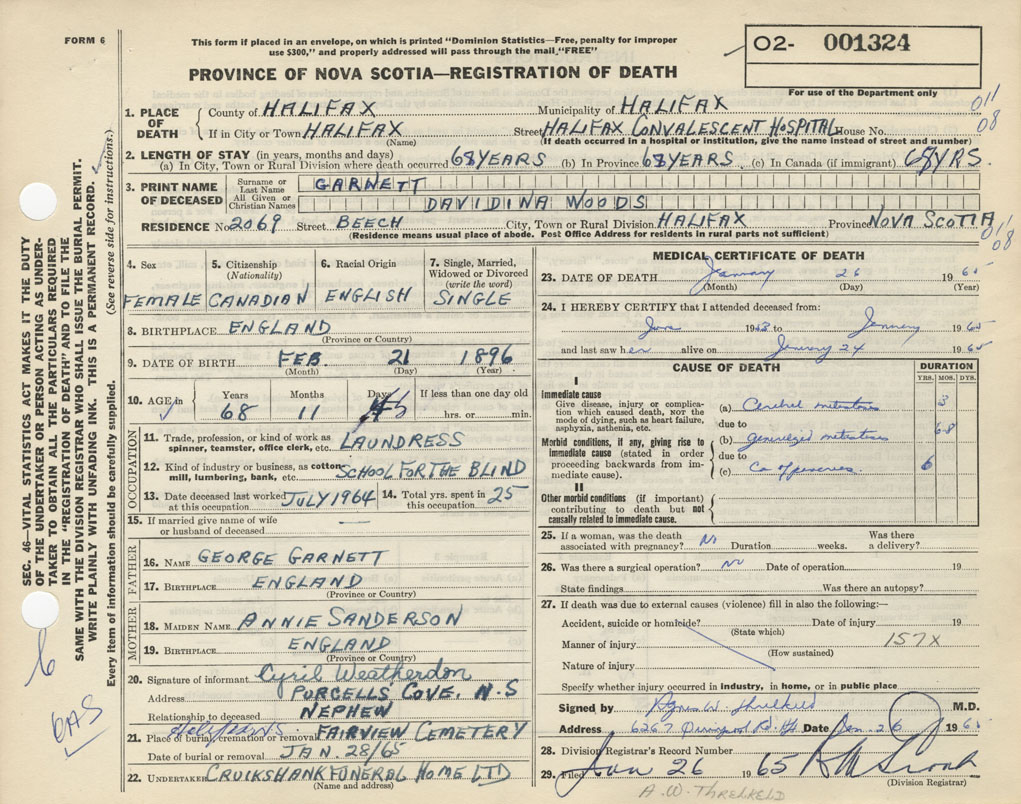 FORM 6
This form if placed in an envelope, on which is printed "Dominion Statistics—Free, penalty for improper
use $300," and properly addressed will pass through the mail "FREE"
PROVINCE OF NOVA SCOTIA—REGISTRATION OF DEATH
02- 001324
For use of the Department only
011
08
1. PLACE OF DEATH
County of HALIFAX Municipality of HALIFAX
If in City or Town HALIFAX Street HALIFAX CONVALESCENT HOSPITAL House No.
(Name) (If death occurred in a hospital or institution, give the name instead of street and number)
2. LENGTH OF STAY (in years, months and days)
(a) In City, Town or Rural Division where death occurred 68 YEARS (b) In Province 68 YEARS (c) In Canada (if immigrant) 68 YRS.
3. PRINT NAME OF DECEASED
Surname or Last Name GARNETT
All Given or Christian Names DAVIDINA WOODS
RESIDENCE No. 2069 Street BEECH City, Town or Rural Division HALIFAX Province NOVA SCOTIA
(Residence means usual place of abode. Post Office Address for residents in rural parts not sufficient)
011
08
4. Sex FEMALE
5. Citizenship (Nationality) CANADIAN
6. Racial Origin ENGLISH
7. Single, Married, Widowed or Divorced (write the word) SINGLE
8. BIRTHPLACE ENGLAND
(Province or Country)
9. DATE OF BIRTH FEB. 21 1896
(Month) (Day) (Year)
10. AGE in Years 68 Months 11 Days 5 If less than one day old
hrs. or min.
OCCUPATION
11. Trade, profession, or kind of work as spinner, teamster, office clerk, etc. LAUNDRESS
12. Kind of industry or business, as cotton mill, lumbering, bank, etc. SCHOOL FOR THE BLIND
13. Date deceased last worked at this occupation JULY 1964 14. Total yrs. spent in this occupation 25
15. If married give name of wife
or husband of deceased —
FATHER
16. NAME GEORGE GARNETT
17. BIRTHPLACE ENGLAND
(Province or Country)
MOTHER
18. MAIDEN NAME ANNIE SANDERSON
19. BIRTHPLACE ENGLAND
(Province or Country)
20. Signature of informant Cyril Weatherdon
Address PURCELLS COVE, N.S
Relationship to deceased NEPHEW
21. Place of burial, cremation or removal FAIRVIEW CEMETERY
Date of burial or removal JAN. 28/65
22. UNDERTAKER CRUIKSHANK FUNERAL HOME LTD
(Name and address)
MEDICAL CERTIFICATE OF DEATH
23. DATE OF DEATH January 26 1965
(Month) (Day) (Year)
24. I HEREBY CERTIFY that I attended deceased from:
19 to January 1965
and last saw her alive on January 24 1965
CAUSE OF DEATH
DURATION
YRS. MOS. DYS.
I
Immediate cause
Give disease, injury or complication which caused death, not the mode of dying, such as heart failure, asphyxia, asthenia, etc.
(a) Cerebral metastases 3
due to
Morbid conditions, if any, giving rise to immediate cause (stated in order proceeding backwards from immediate cause).
(b) generalized metastases 6-8
due to
(c) Ca of pancreas 6
II
Other morbid conditions (if important) contributing to death but not causally related to immediate cause.
25. If a woman, was the death associated with pregnancy? No Duration weeks. Was there a delivery?
26. Was there a surgical operation? No Date of operation 19
State findings Was there an autopsy?
27. If death was due to external causes (violence) fill in also the following:—
Accident, suicide or homicide? Date of injury 19
(State which)
Manner of injury 157X
(How sustained)
Nature of injury
Specify whether injury occurred in industry, in home, or in public place
Signed by W. Threlkeld M.D.
Address 6267 Quinpool Rd. Hfx Date Jan. 26 1965
28. Division Registrar's Record Number
29. Filed Jan 26 1965
(Division Registrar)
A. W. THRELKELD
SEC. 46—VITAL STATISTICS ACT MAKES IT THE DUTY
OF THE UNDERTAKER OR PERSON ACTING AS UNDER-
TAKER TO OBTAIN ALL THE PARTICULARS REQUIRED
IN THE "REGISTRATION OF DEATH" AND TO FILE THE
SAME WITH THE DIVISION REGISTRAR WHO SHALL ISSUE THE BURIAL PERMIT.
WRITE PLAINLY WITH UNFADING INK. THIS IS A PERMANENT RECORD.
Every item of information should be carefully supplied. (See reverse side for instructions.)